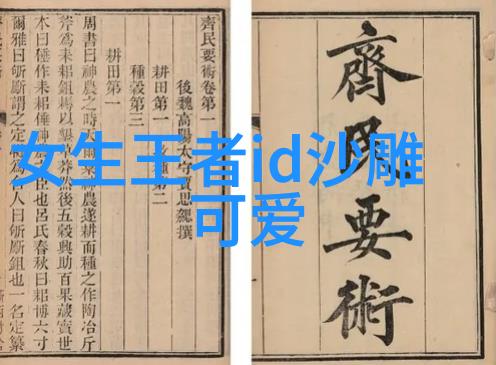 齊民要術
齊民要術卷第一
後魏高陽太守賈思勰撰
耕田第一 種第二
種穀第三
耕田第一
周書曰神農之時天雨粟神農遂耕而種之作陶冶斤
斧爲耒耜鉏耨以墾草莽然後五穀興助百果藏實世
本曰倕作耒耜神農之臣也呂氏春秋曰耜博六寸
爾雅曰斪斸謂之定犍爲舍人曰斪斸鉏也一名定纂
女生王者id沙雕
可爱